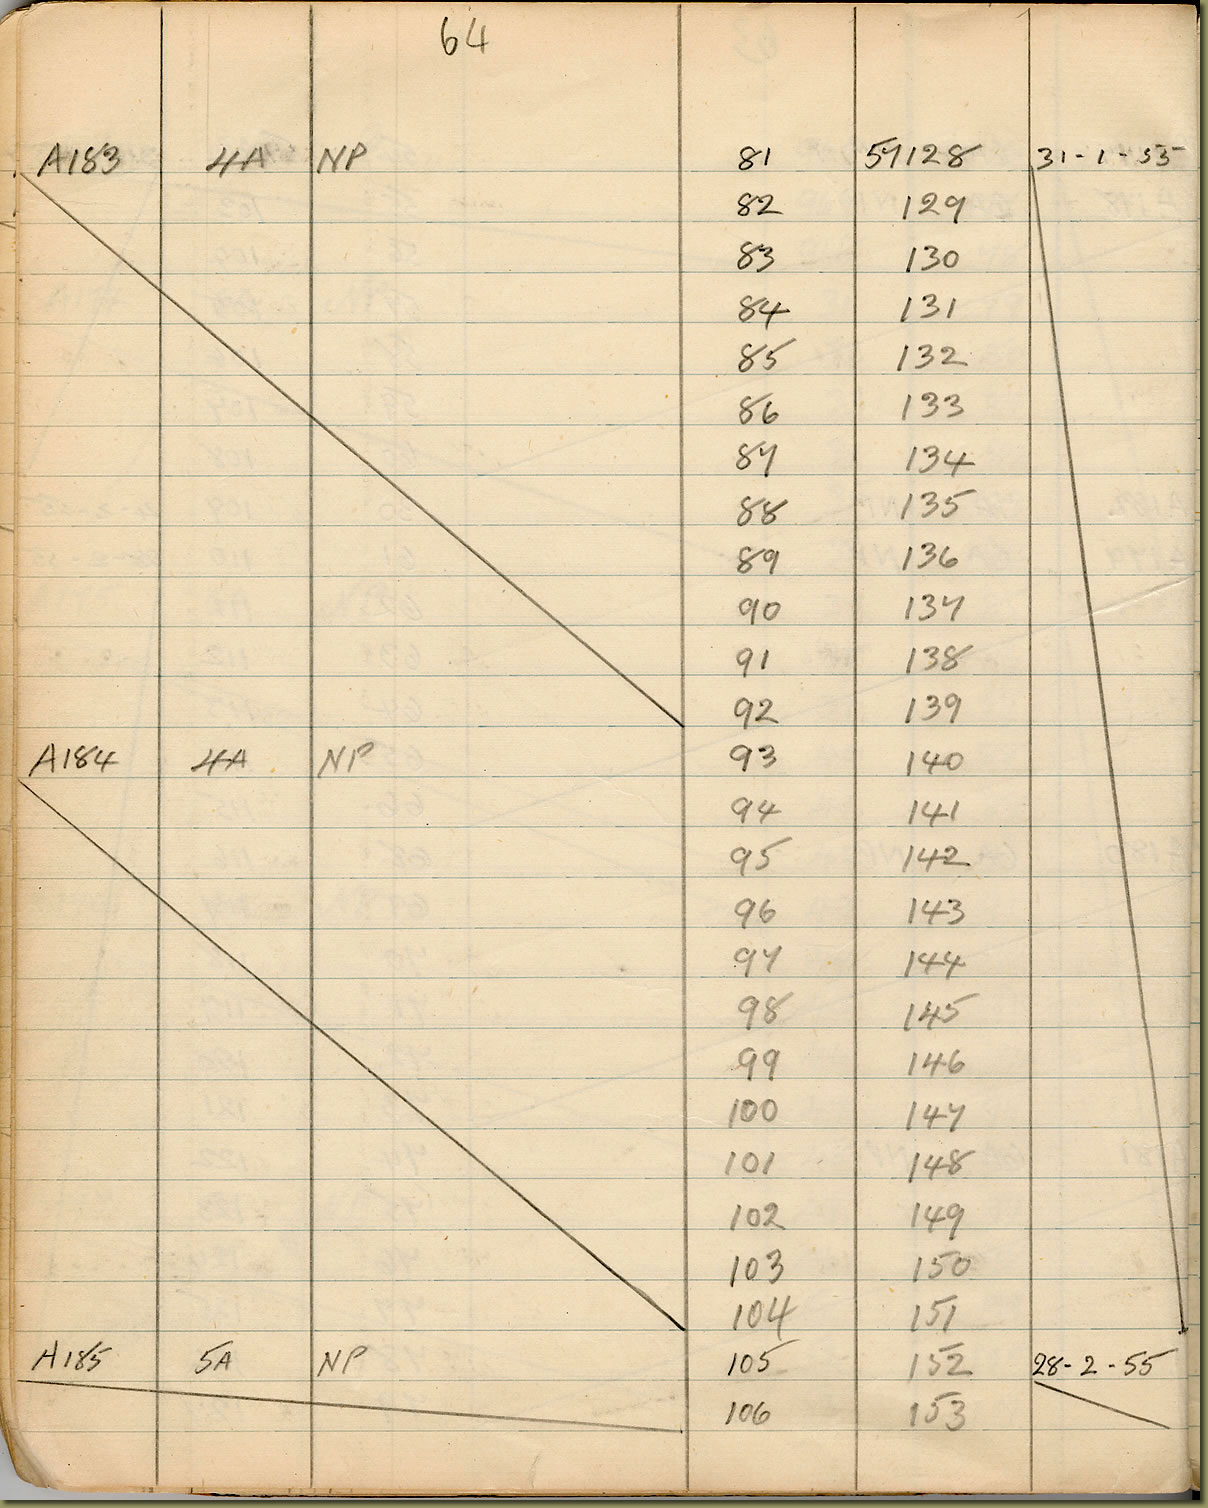 64
A183 4A NP 81 57128 31-1-55
82 129
83 130
84 131
85 132
86 133
87 134
88 135
89 136
90 137
91 138
92 139
A184 4A NP 93 140
94 141
95 142
96 143
97 144
98 145
99 146
100 147
101 148
102 149
103 150
104 151
A185 5A NP 105 152 28-2-55
106 153